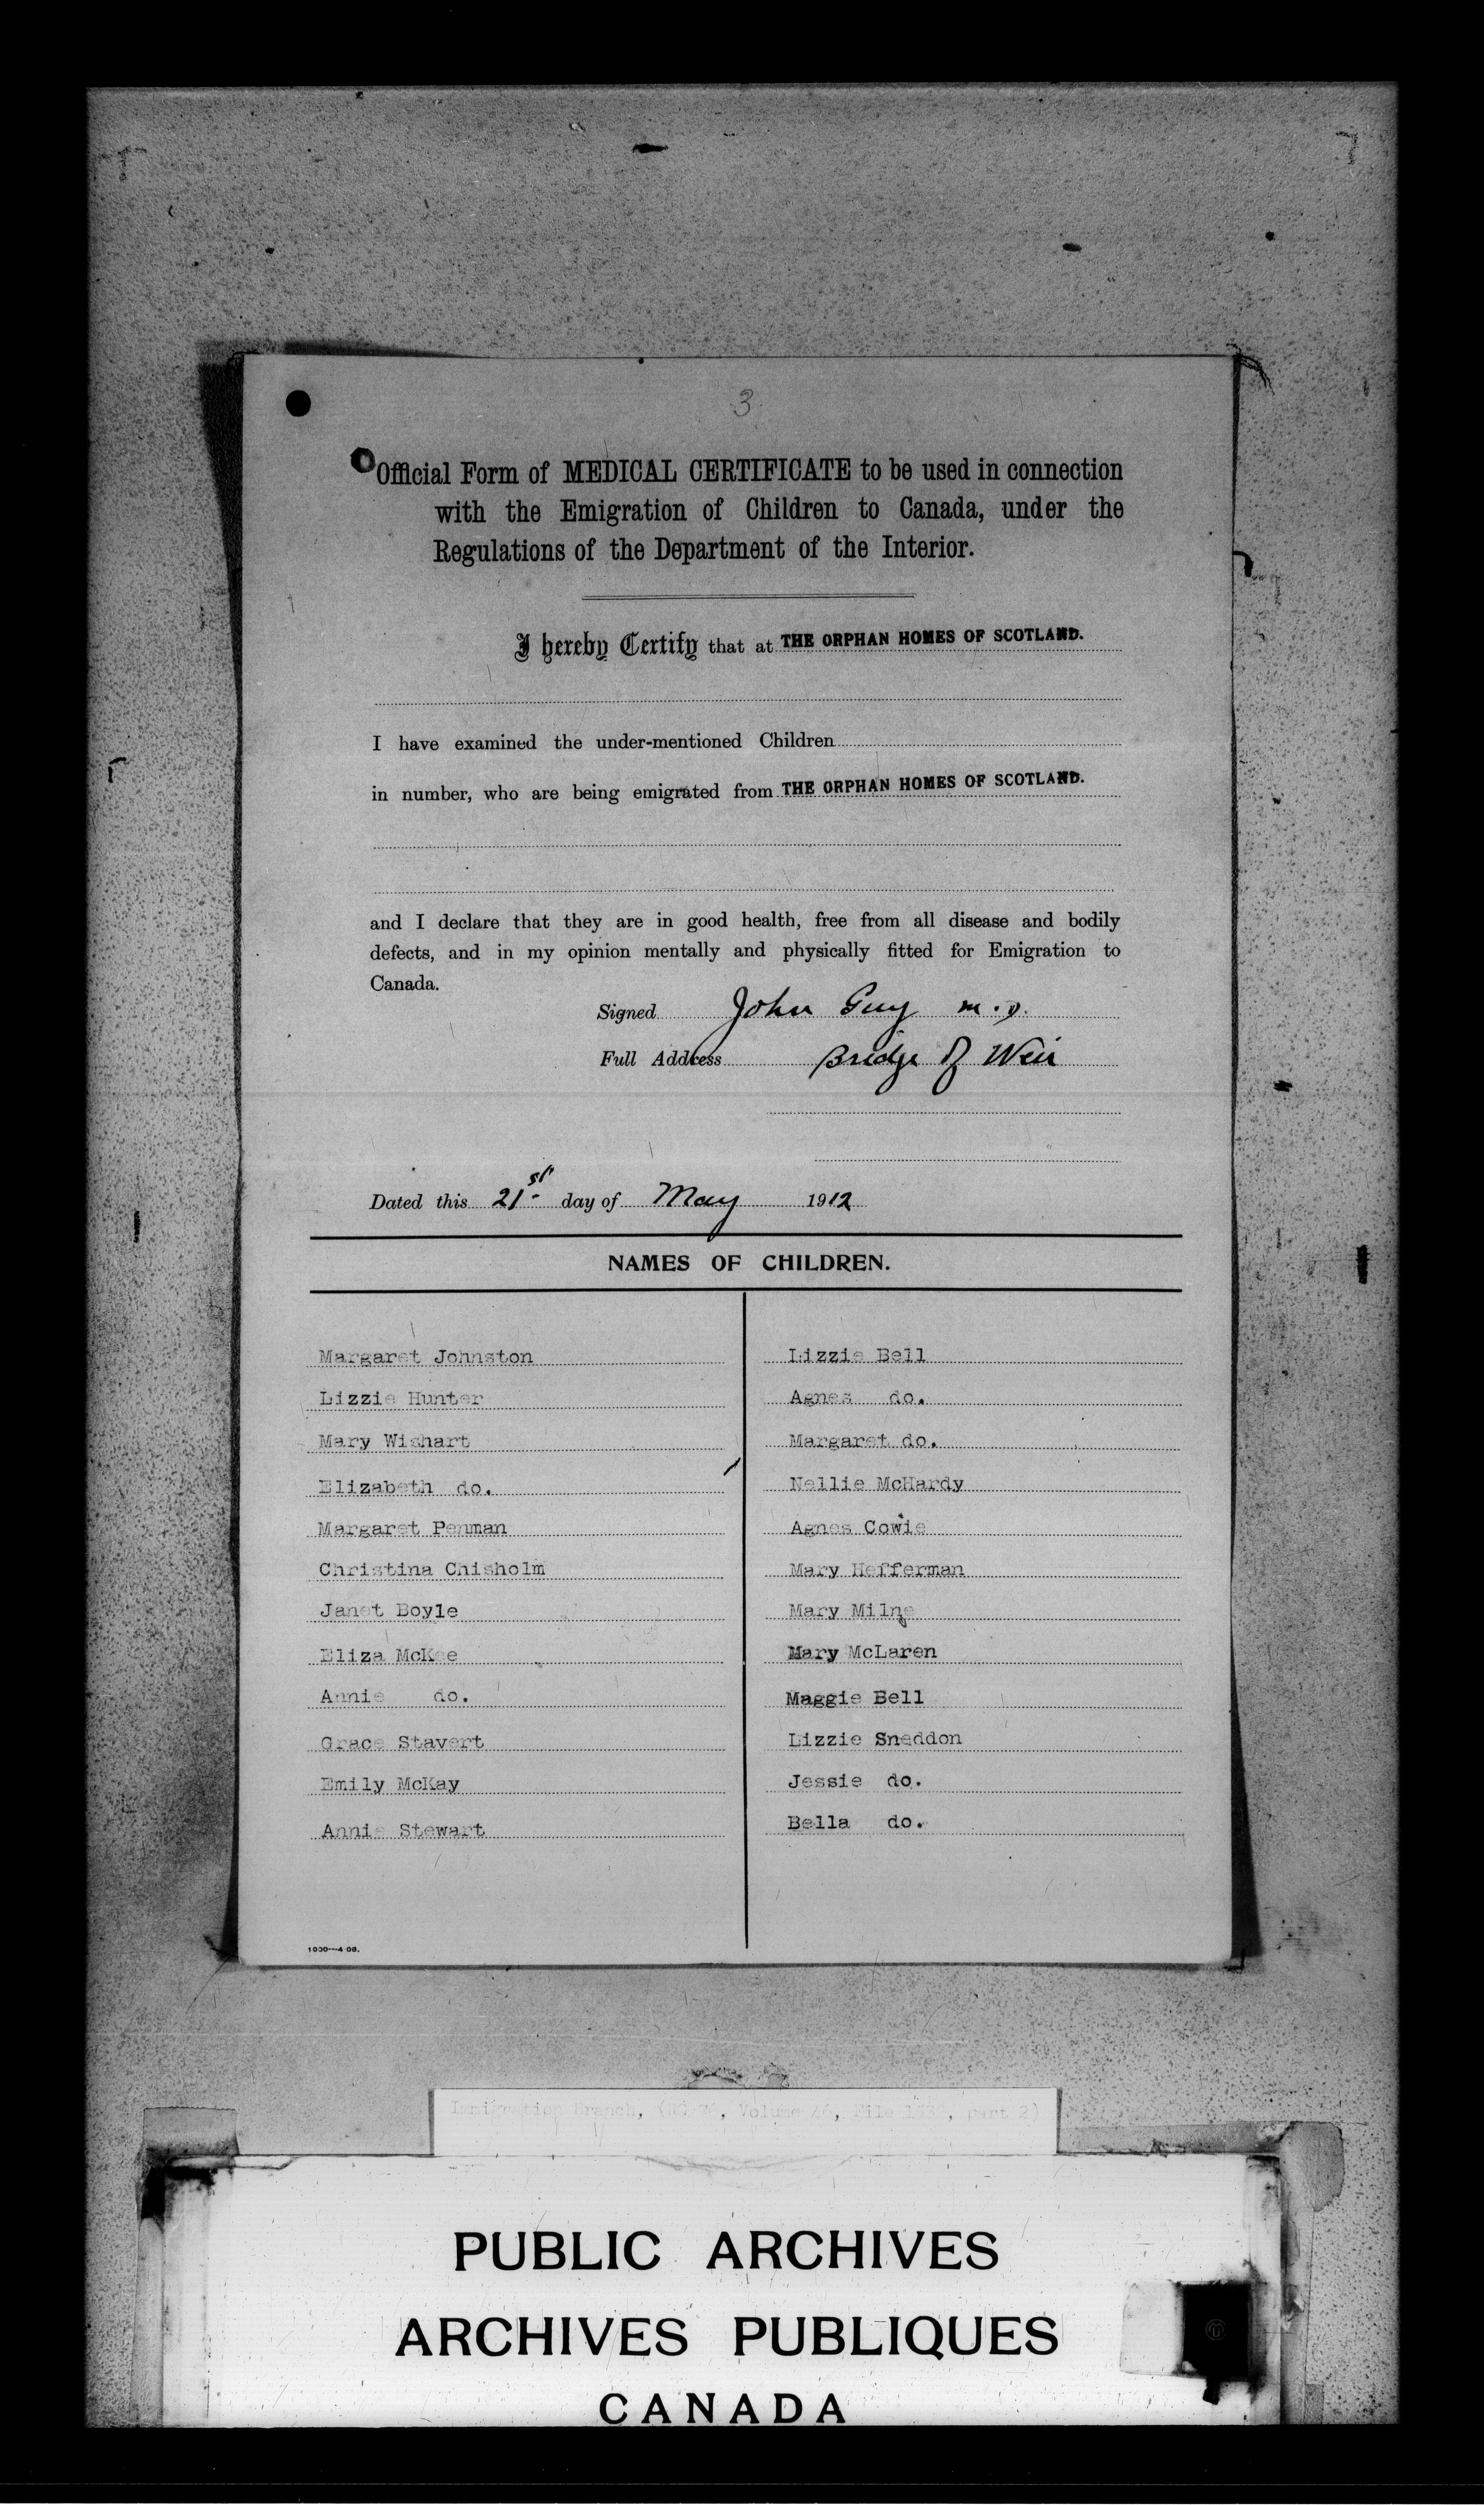 3
Official Form of MEDICAL CERTIFICATE to be used in connection
with the Emigration of Children to Canada, under the
Regulations of the Department of the Interior.
I hereby Certify that at THE ORPHAN HOMES OF SCOTLAND.
I have examined the under-mentioned Children
in number, who are being emigrated from THE ORPHAN HOMES OF SCOTLAND.
and I declare that they are in good health, free from all disease and bodily
defects, and in my opinion mentally and physically fitted for Emigration to
Canada.
Signed John Guy M.D.
Full Address Bridge of Weir
Dated this 21st day of May 1912
NAMES OF CHILDREN.
Margaret Johnston
Lizzie Hunter
Mary Wishart
Elizabeth do.
Margaret Penman
Christina Chisholm
Janet Boyle
Eliza McKee
Annie do.
Grace Stavert
Emily McKay
Annie Stewart
Lizzie Bell
Agnes do.
Margaret do.
Nellie McHardy
Agnes Cowie
Mary Hefferman
Mary Milne
Mary McLaren
Maggie Bell
Lizzie Sneddon
Jessie do.
Bella do.
1000---4 08.
Immigration Branch, (RG 76, Volume 46, File , part 2)
PUBLIC ARCHIVES
ARCHIVES PUBLIQUES
CANADA